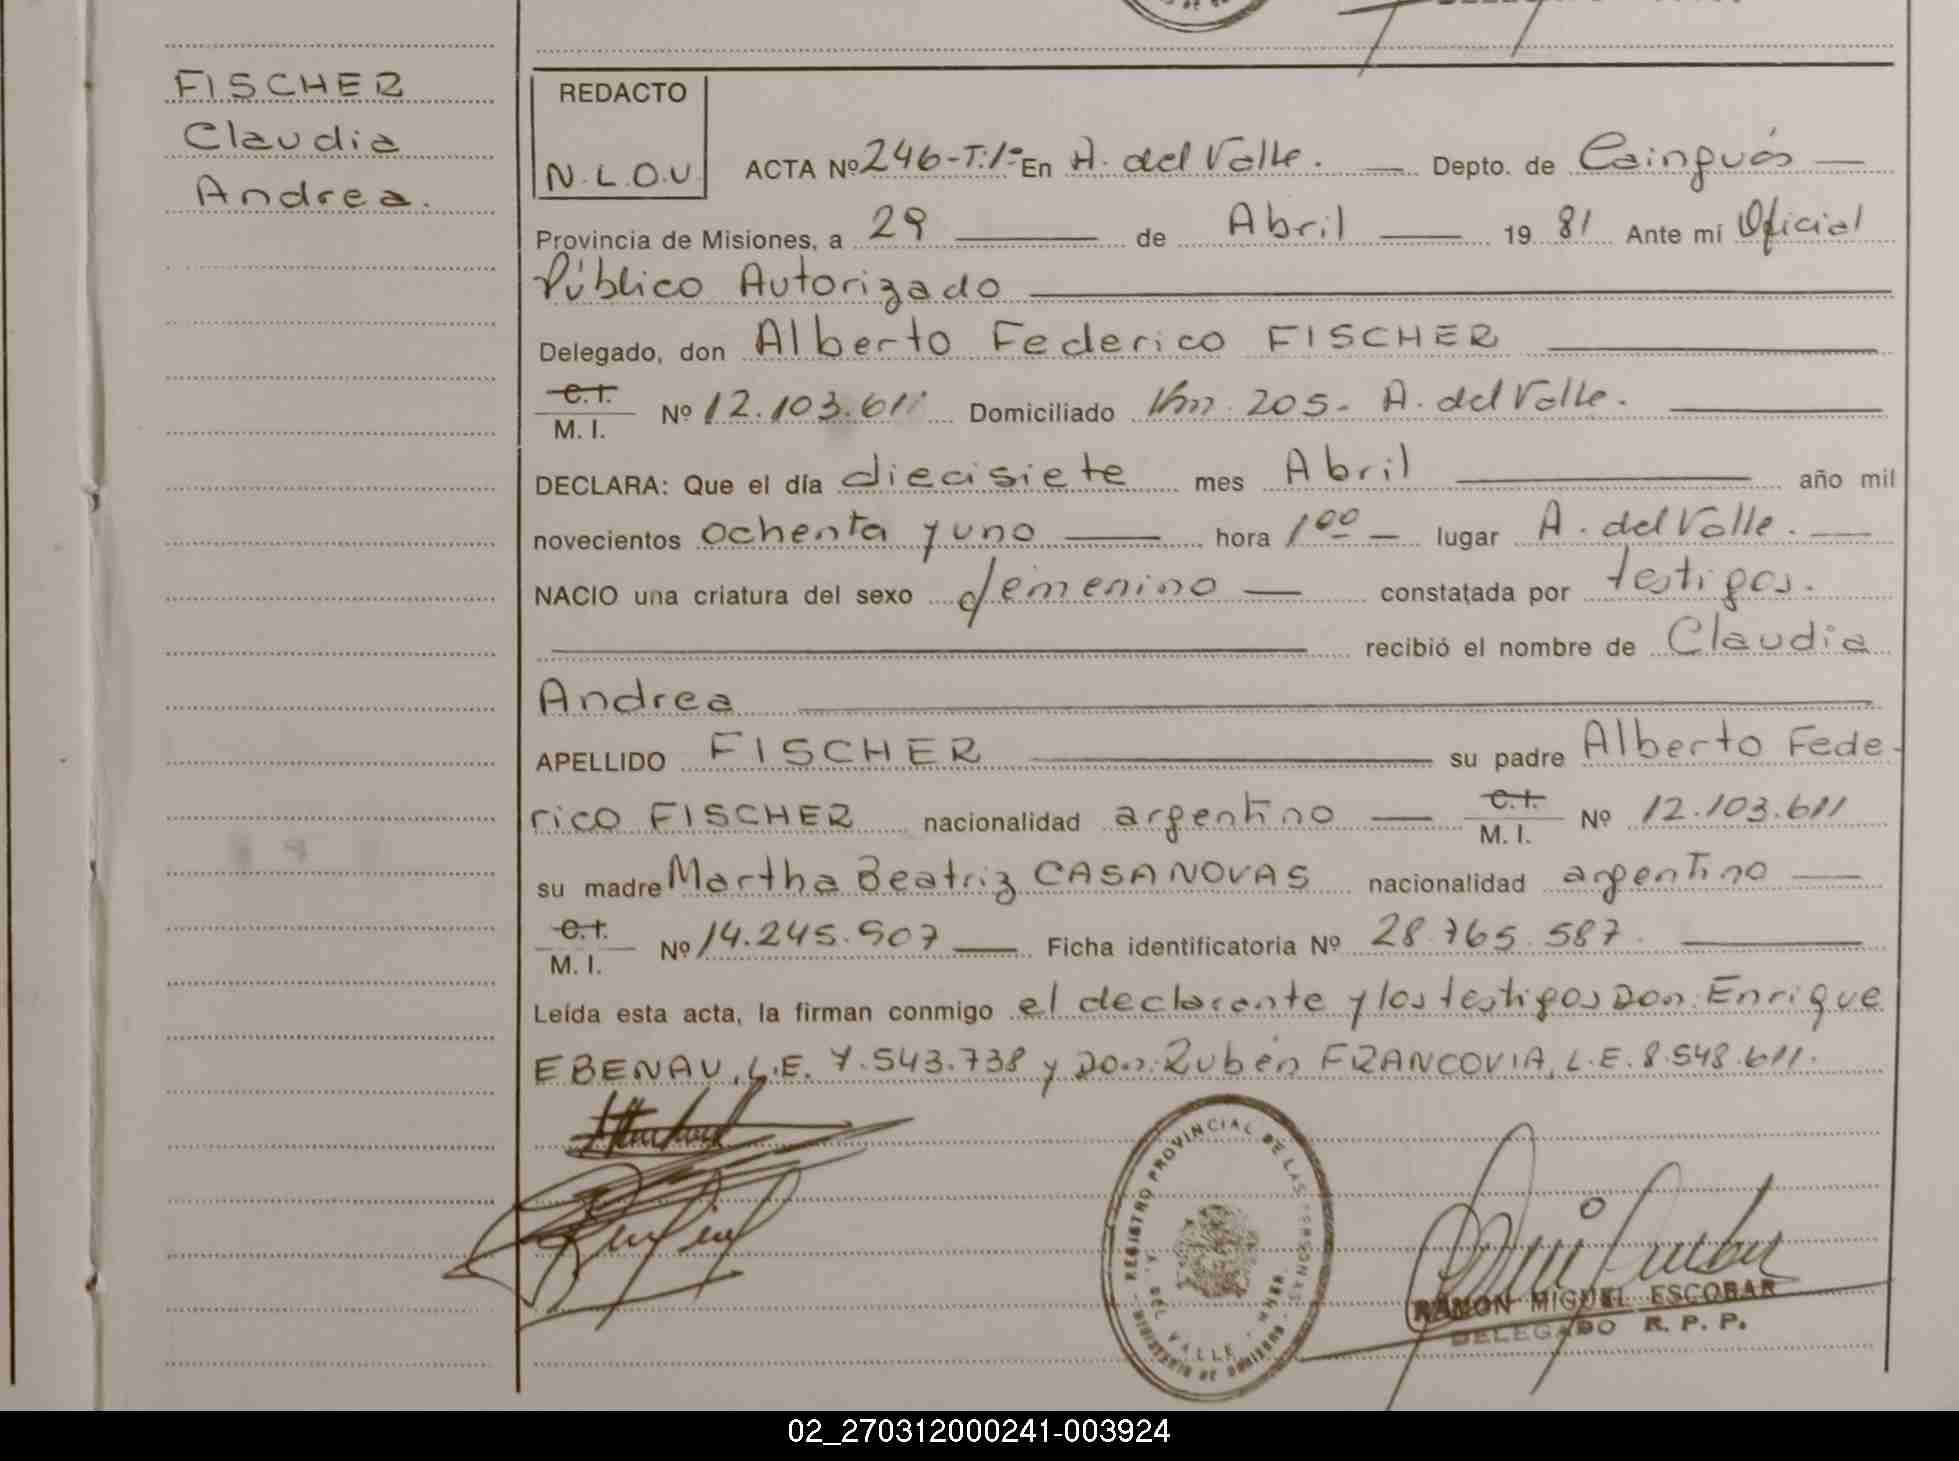 FISCHER
Claudia
Andrea.
REDACTO
N.L.O.V.
ACTA Nº 246-T:1º En A. del Valle. Depto. de Cainguás
Provincia de Misiones, a 29 de Abril 1981 Ante mí Oficial
Público Autorizado
Delegado, don Alberto Federico FISCHER
C.I.
M. I. Nº 12.103.611 Domiciliado Km 205- A. del Valle.
DECLARA: Que el día diecisiete mes Abril año mil
novecientos ochenta y uno hora 100 lugar A. del Valle.
NACIO una criatura del sexo femenino constatada por testigos.
recibió el nombre de Claudia
Andrea
APELLIDO FISCHER su padre Alberto Fede-
rico FISCHER nacionalidad argentino C.I. M. I. Nº 12.103.611
su madre Martha Beatriz CASANOVAS nacionalidad argentino
C.I.
M. I. Nº 14.245.507 Ficha identificatoria Nº 28.765.587.
Leída esta acta, la firman conmigo el declarante y los testigos Don: Enrique
EBENAU, L.E. 7.543.738 y Don: Rubén FRANCOVIA, L.E. 8.548.611.
REGISTRO PROVINCIAL DE LAS PERSONAS
A. DEL VALLE
RAMON MIGUEL ESCOBAR
DELEGADO R. P. P.
02_270312000241-003924